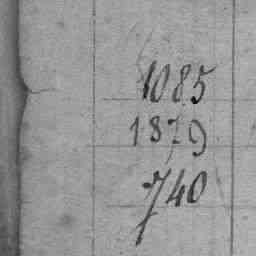 1085
1879
740